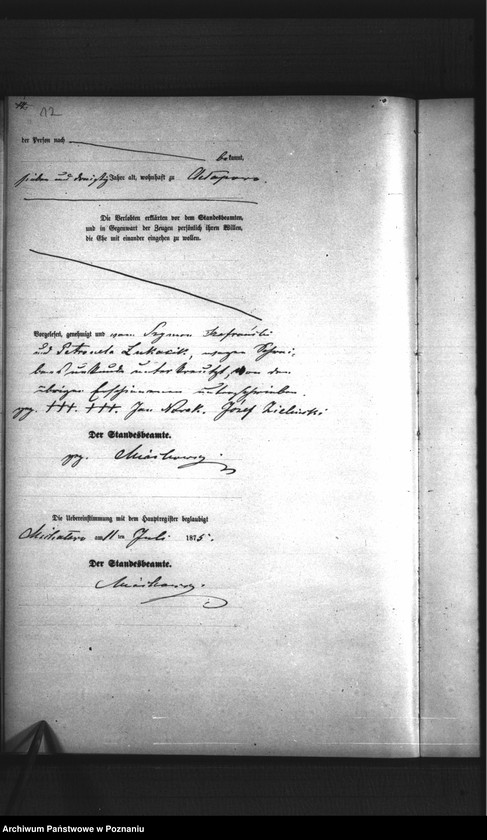 12
der Person nach
bekannt,
sieben und dreißig Jahre alt, wohnhaft zu
Die Verlobten erklärten vor dem Standesbeamten,
und in Gegenwart der Zeugen persönlich ihren Willen,
die Ehe mit einander eingehen zu wollen.
Vorgelesen, genehmigt und vom Szymon Szafrański
und Petronela Lukacik, wegen Schrei-
bensunkunde unterkreuzt, von den
übrigen Erschienenen unterschrieben.
gez. +++. +++. Jan Nowak. Józef Zieliński
Der Standesbeamte.
gez.
Die Uebereinstimmung mit dem Hauptregister beglaubigt
am 11 ten Juli 1875.
Der Standesbeamte.
Archiwum Państwowe w Poznaniu